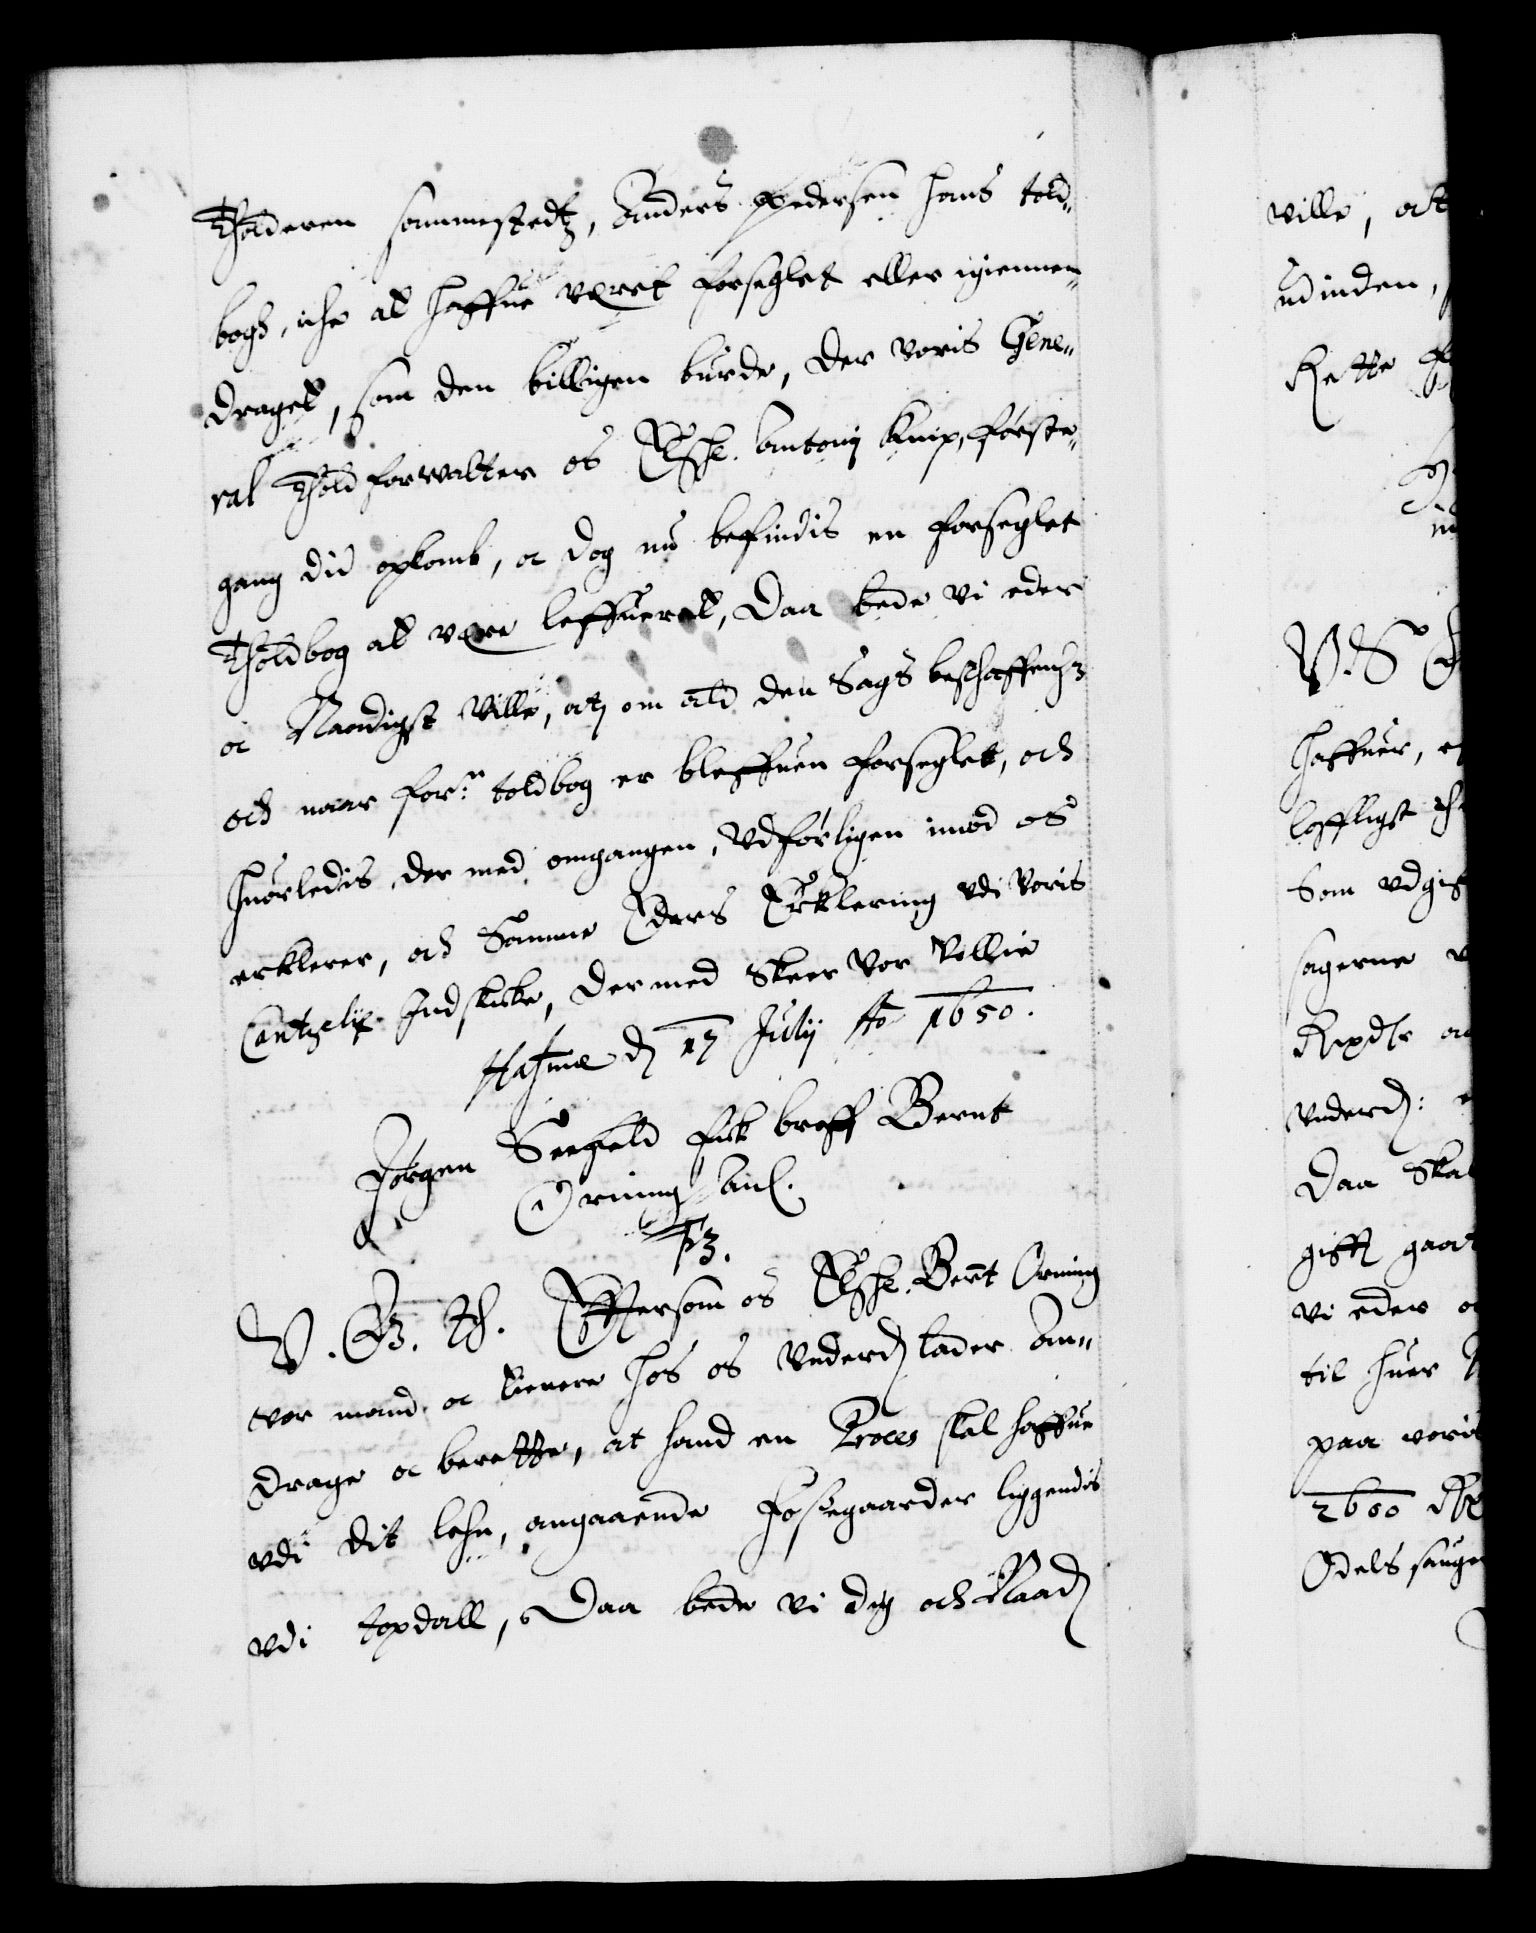 Tholderen sammestedtz, Anders Pedersen hans told¬
bogh, iche at haffue været forseglet eller igiennem¬
draget, som den billigen burde, der voris Gene¬
ral Thold forwalter os Elsche. Antonj Knip, første¬
gang did opkomb, oc dog nu befindis en forseglet
Tholdbog at være leffueret, Daa bede vi eder
oc Naadigst ville, atj om ald den Sags beschaffenhed
och naar for:ne toldbog er bleffuen forseglet, och
huorledis der med omgangen, vdførligen imod os
erklerer, och Samme Eders Erklering vdi Voris
Cantzelij Indskicke, Dermed Skeer Vor Villie
Hafniæ dj 17 Julij Ao 1650.
Jørgen Seefeld fik breff Bernt
Orning Anl.
F3.
V. G. T. Effttersom os Elsche. Bernt Orning
vor mand oc tienere hos os Vnderdj lader An¬
drage oc berette, at hand en Proces skal haffue
vdi dit lehn, angaaende Jossegaarder liggendis
vdi topdall, Daa bede vi dig och Naadj
ville, at
udinden,
Rette
V. G.
haffuer,
loffligt
Som vdgif
sagerne
Rixdlr
Vnderdj:
Daa Skal
gifft gaar
vi eder oc
til huer
paa voris
2600
Odels